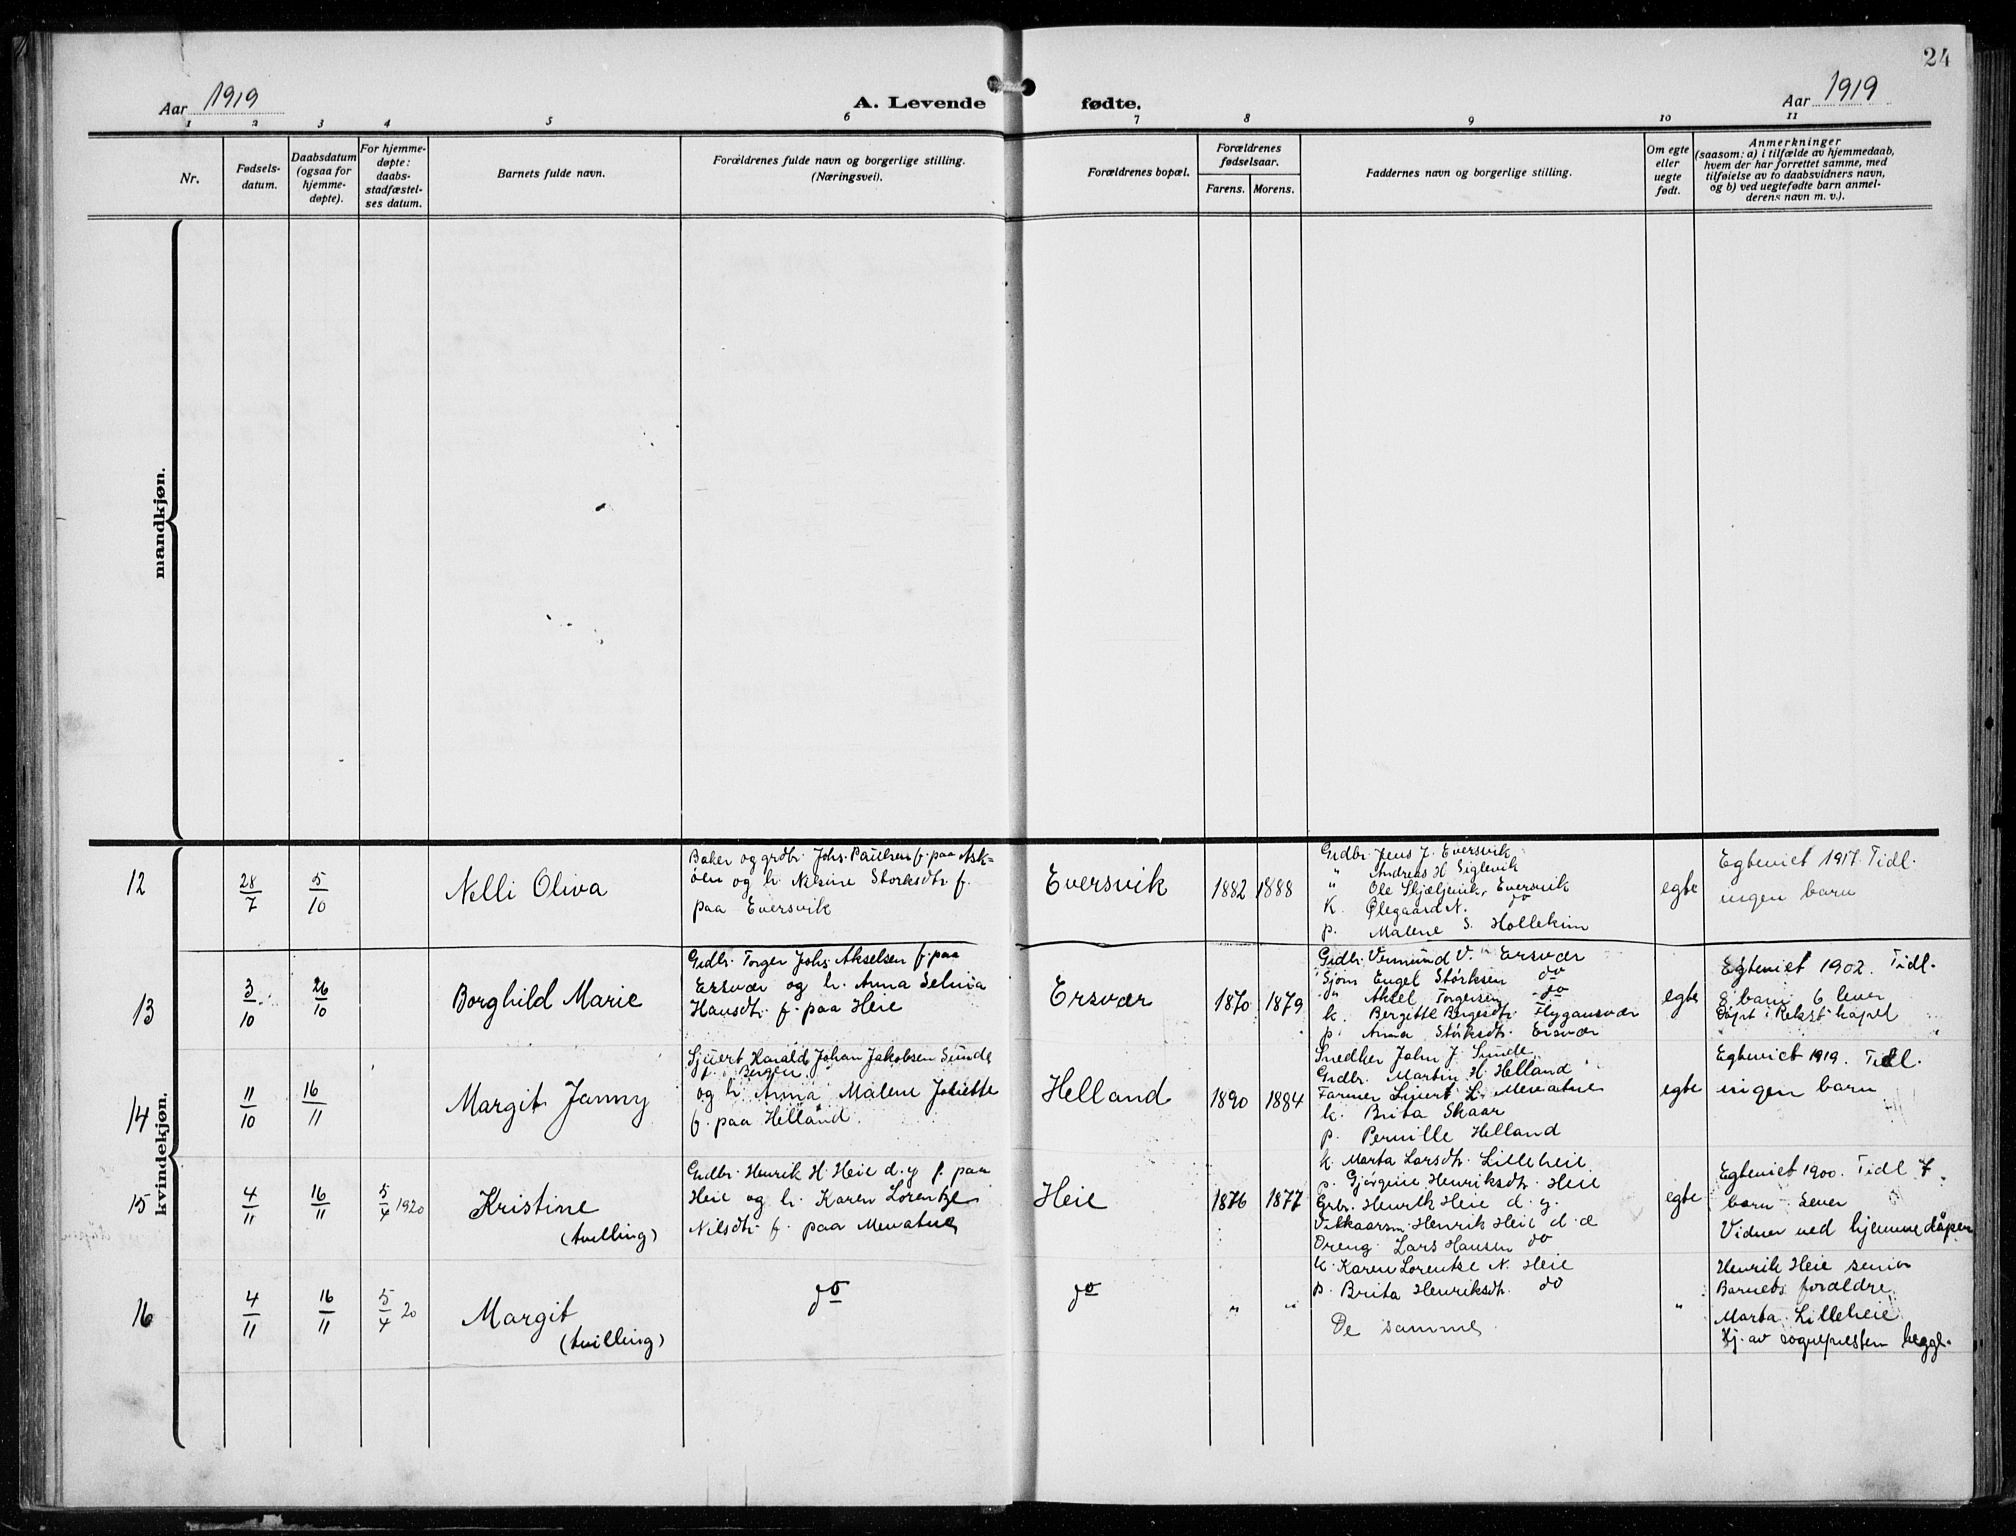 24
Aar 1919
A. Levende fødte.
Aar 1919
1 2 3 4 5 6 7 8 9 10 11
Nr.
Fødsels-
datum.
Daabsdatum
(ogsaa for
hjemme-
døpte).
For hjemme-
døpte:
daabs-
stadfæstel-
ses datum.
Barnets fulde navn.
Forældrenes fulde navn og borgerlige stilling.
(Næringsvei).
Forældrenes bopæl.
Forældrenes
fødselsaar.
Farens. Morens.
Faddernes navn og borgerlige stilling.
Om egte
eller
uegte
født.
Anmerkninger
(saasom: a) i tilfælde av hjemmedaab,
hvem der har forrettet samme, med
tilføielse av to daabsvidners navn,
og b) ved uegtefødte barn anmel-
derens navn m. v.).
mandkjøn.
kvindekjøn.
12
28/7
5/10
Nelli Oliva
Baker og grdbr. Johs. Paulsen f. paa Ask-
öen og h. Nelsine Storksdtr f.
paa Eversvik
Eversvik
1882 1888
Grdbr. Jens J. Eversvik
" Andreas H Siglevik
" Ole Skjæljevik, Eversvik
K. Ølegaard N. do
p. Malene S. Hollekim
egte
Egteviet 1917. Tidl.
ingen barn
13
3/10
26/10
Borghild Marie
Grdbr. Torger Johs. Akselsen f. paa
Ersvær og h. Anna Selma
Hansdtr. f. paa Heie
Ersvær
1870 1879
Grdbr. Vermund V. Ersvær
Sjöm. Engel Störksen do
d" Aksel Torgersen do
k. Bergitte Børgesdtr. Flygansvær
p. Anna Störksdtr. Ersvær
egte
Egteviet 1902. Tidl.
8 barn 6 lever
Döpt i Rekst. kapel
14
11/10
16/11
Margit Janny
Sjuert Harald Johan Jakobsen Sunde
f. i Bergen
og h. Anna Malene Joliette
f. paa Helland.
Helland
1890 1884
Snedker John J. Sunde
Grdbr. Martin H. Helland
Farmer Sjuert L. Mevatne
k. Brita Skaar
p. Pernille Helland
egte
Egteviet 1919. Tidl.
ingen barn
15
4/11
16/11
5/4 1920
Kristine
(tvilling)
Grdbr. Henrik H. Heie d.y. f. paa
Heie og h. Karen Lorentze
Nilsdtr. f. paa Mevatne
Heie
1876 1877
k. Marta Larsdtr. Lilleheie
p. Gjørgine Henriksdtr. Heie
Grbr. Henrik Heie d. y.
Vilkaarsm. Henrik Heie d. æ
Dreng Lars Hansen do
k. Karen Lorentze N. Heie
p. Brita Henriksdtr. do
egte
Egteviet 1900. Tidl 7
barn. Lever
Vidner ved hjemmedåpen
Henrik Heie senior
Barnets forældre
Marta Lilleheie
Hj. av sognepresten begge.
16
4/11
16/11
5/4 20
Margit
(tvilling)
do
do
" "
De samme
"